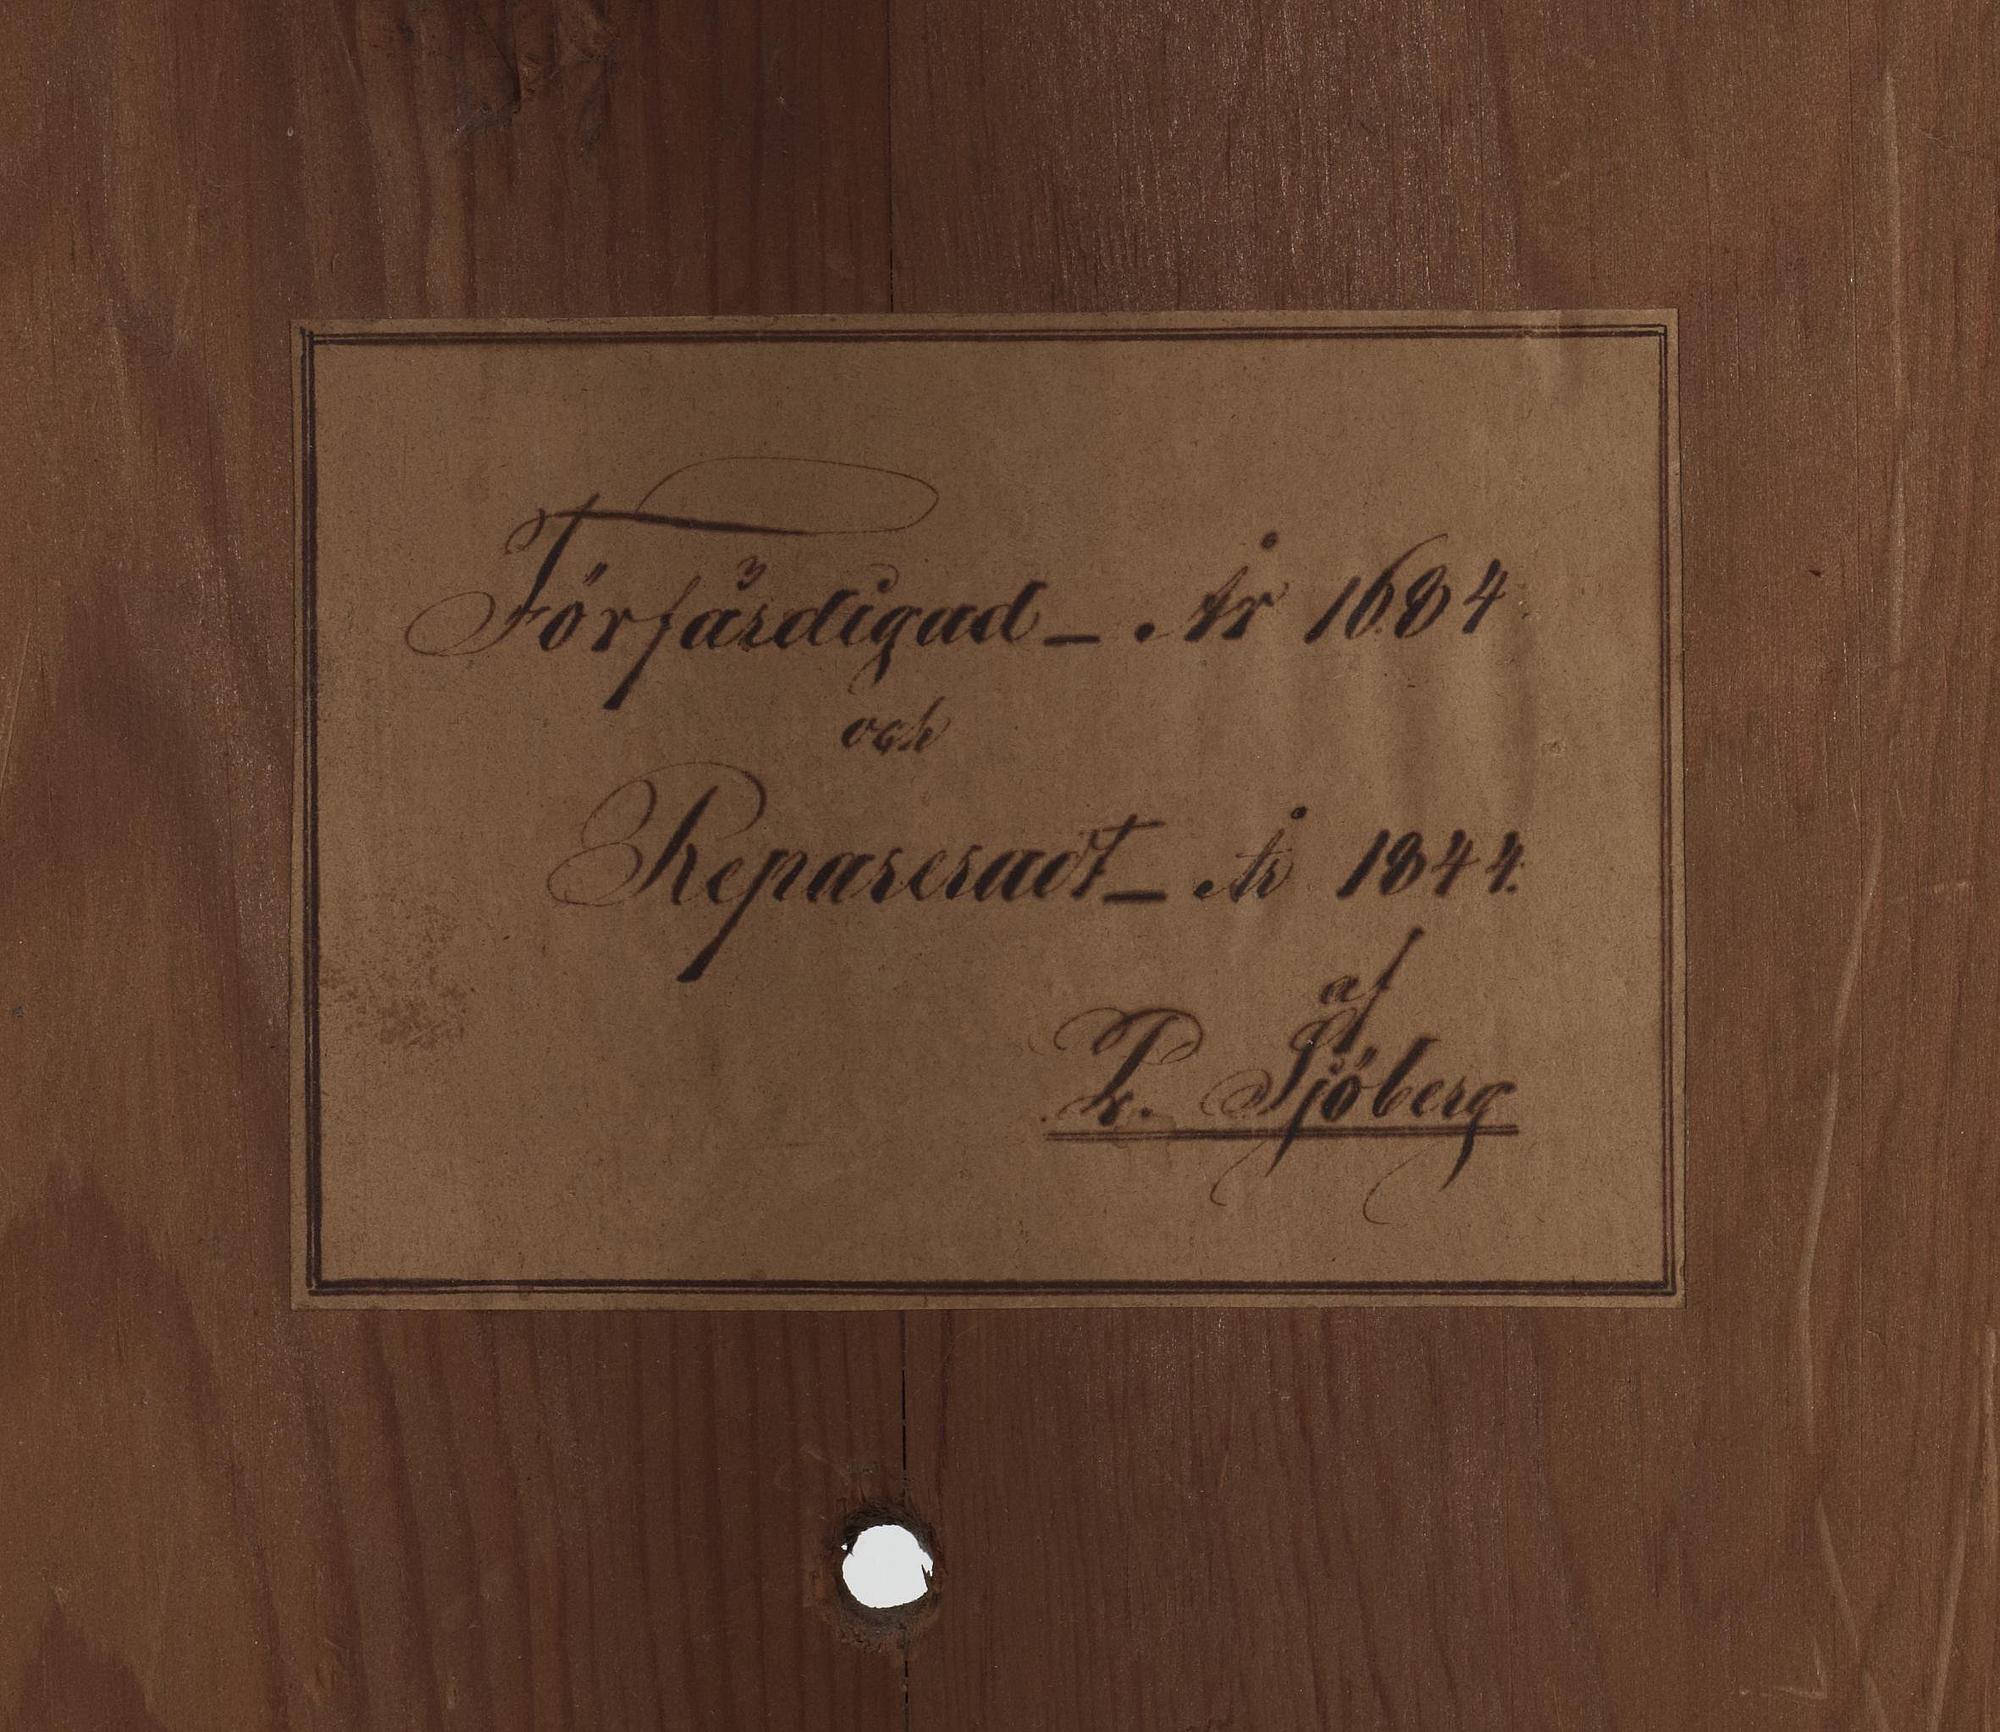 Förfärdigad – År 1684
och
Repareradt – År 1844.
af
P. Sjöberg